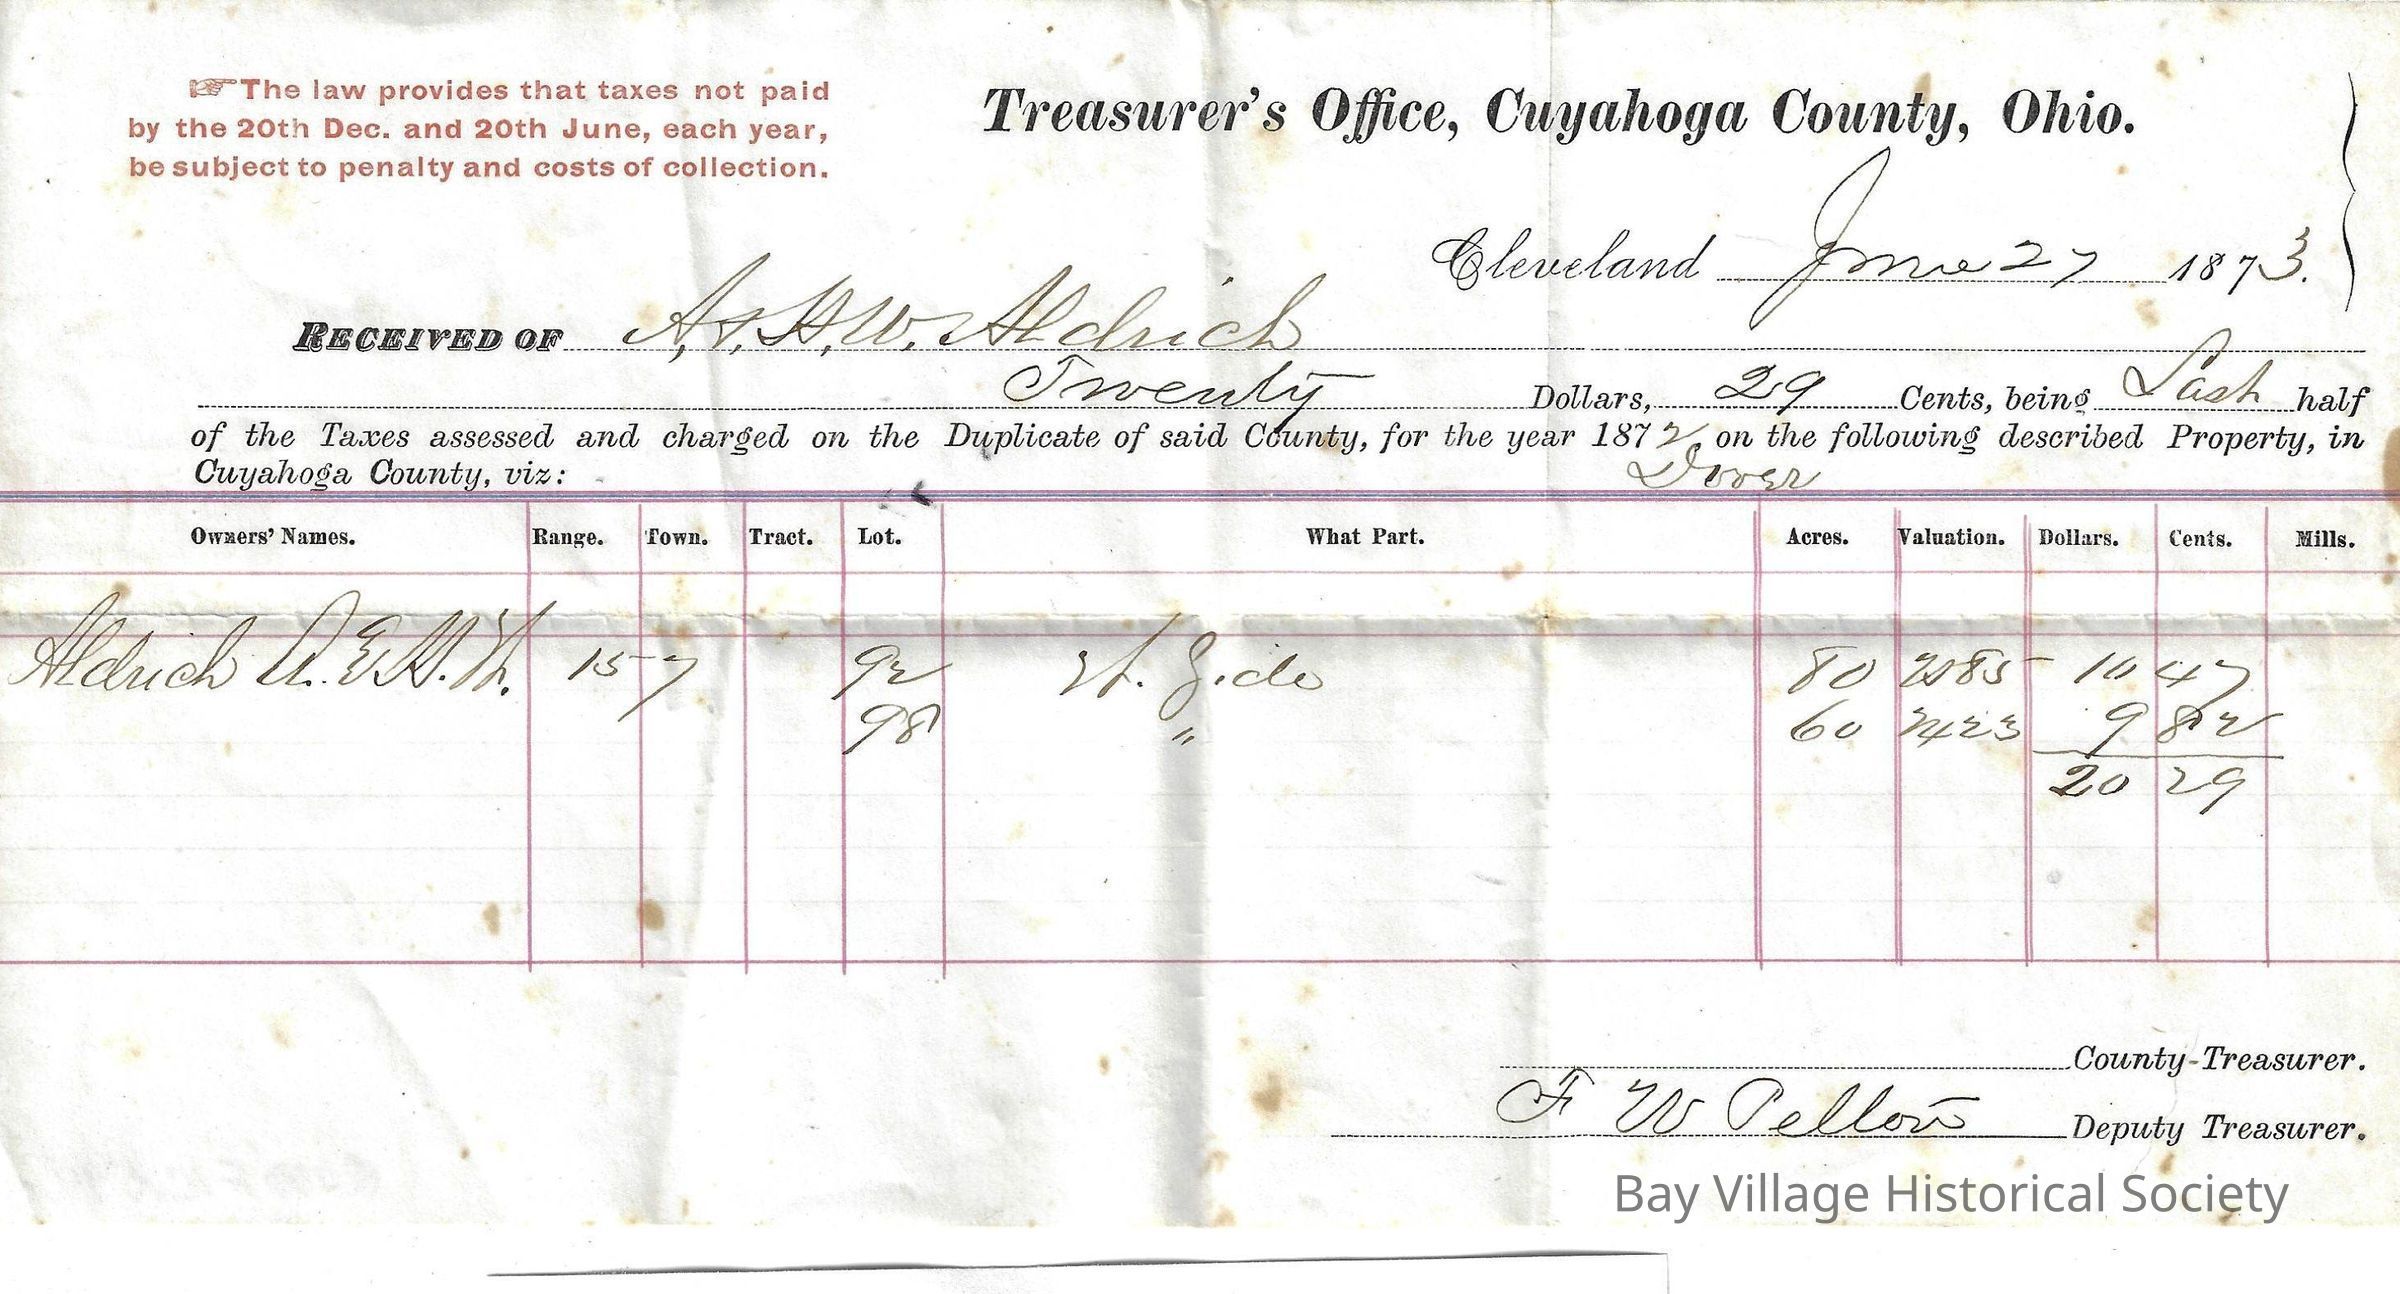 ☞The law provides that taxes not paid
by the 20th Dec. and 20th June, each year,
be subject to penalty and costs of collection.
Treasurer's Office, Cuyahoga County, Ohio.
Cleveland June 27 1873.
RECEIVED OF A. & H. W. Aldrich
Twenty Dollars, 29 Cents, being Last half
of the Taxes assessed and charged on the Duplicate of said County, for the year 1872, on the following described Property, in
Cuyahoga County, viz: Dover
Owners' Names. Range. Town. Tract. Lot. What Part. Acres. Valuation. Dollars. Cents. Mills.
Aldrich A. & H. W. 15 7 92 W. Side 80 2585 10 47
98 " 60 2423 9 82
20 29
County-Treasurer.
F W Pellow Deputy Treasurer.
Bay Village Historical Society